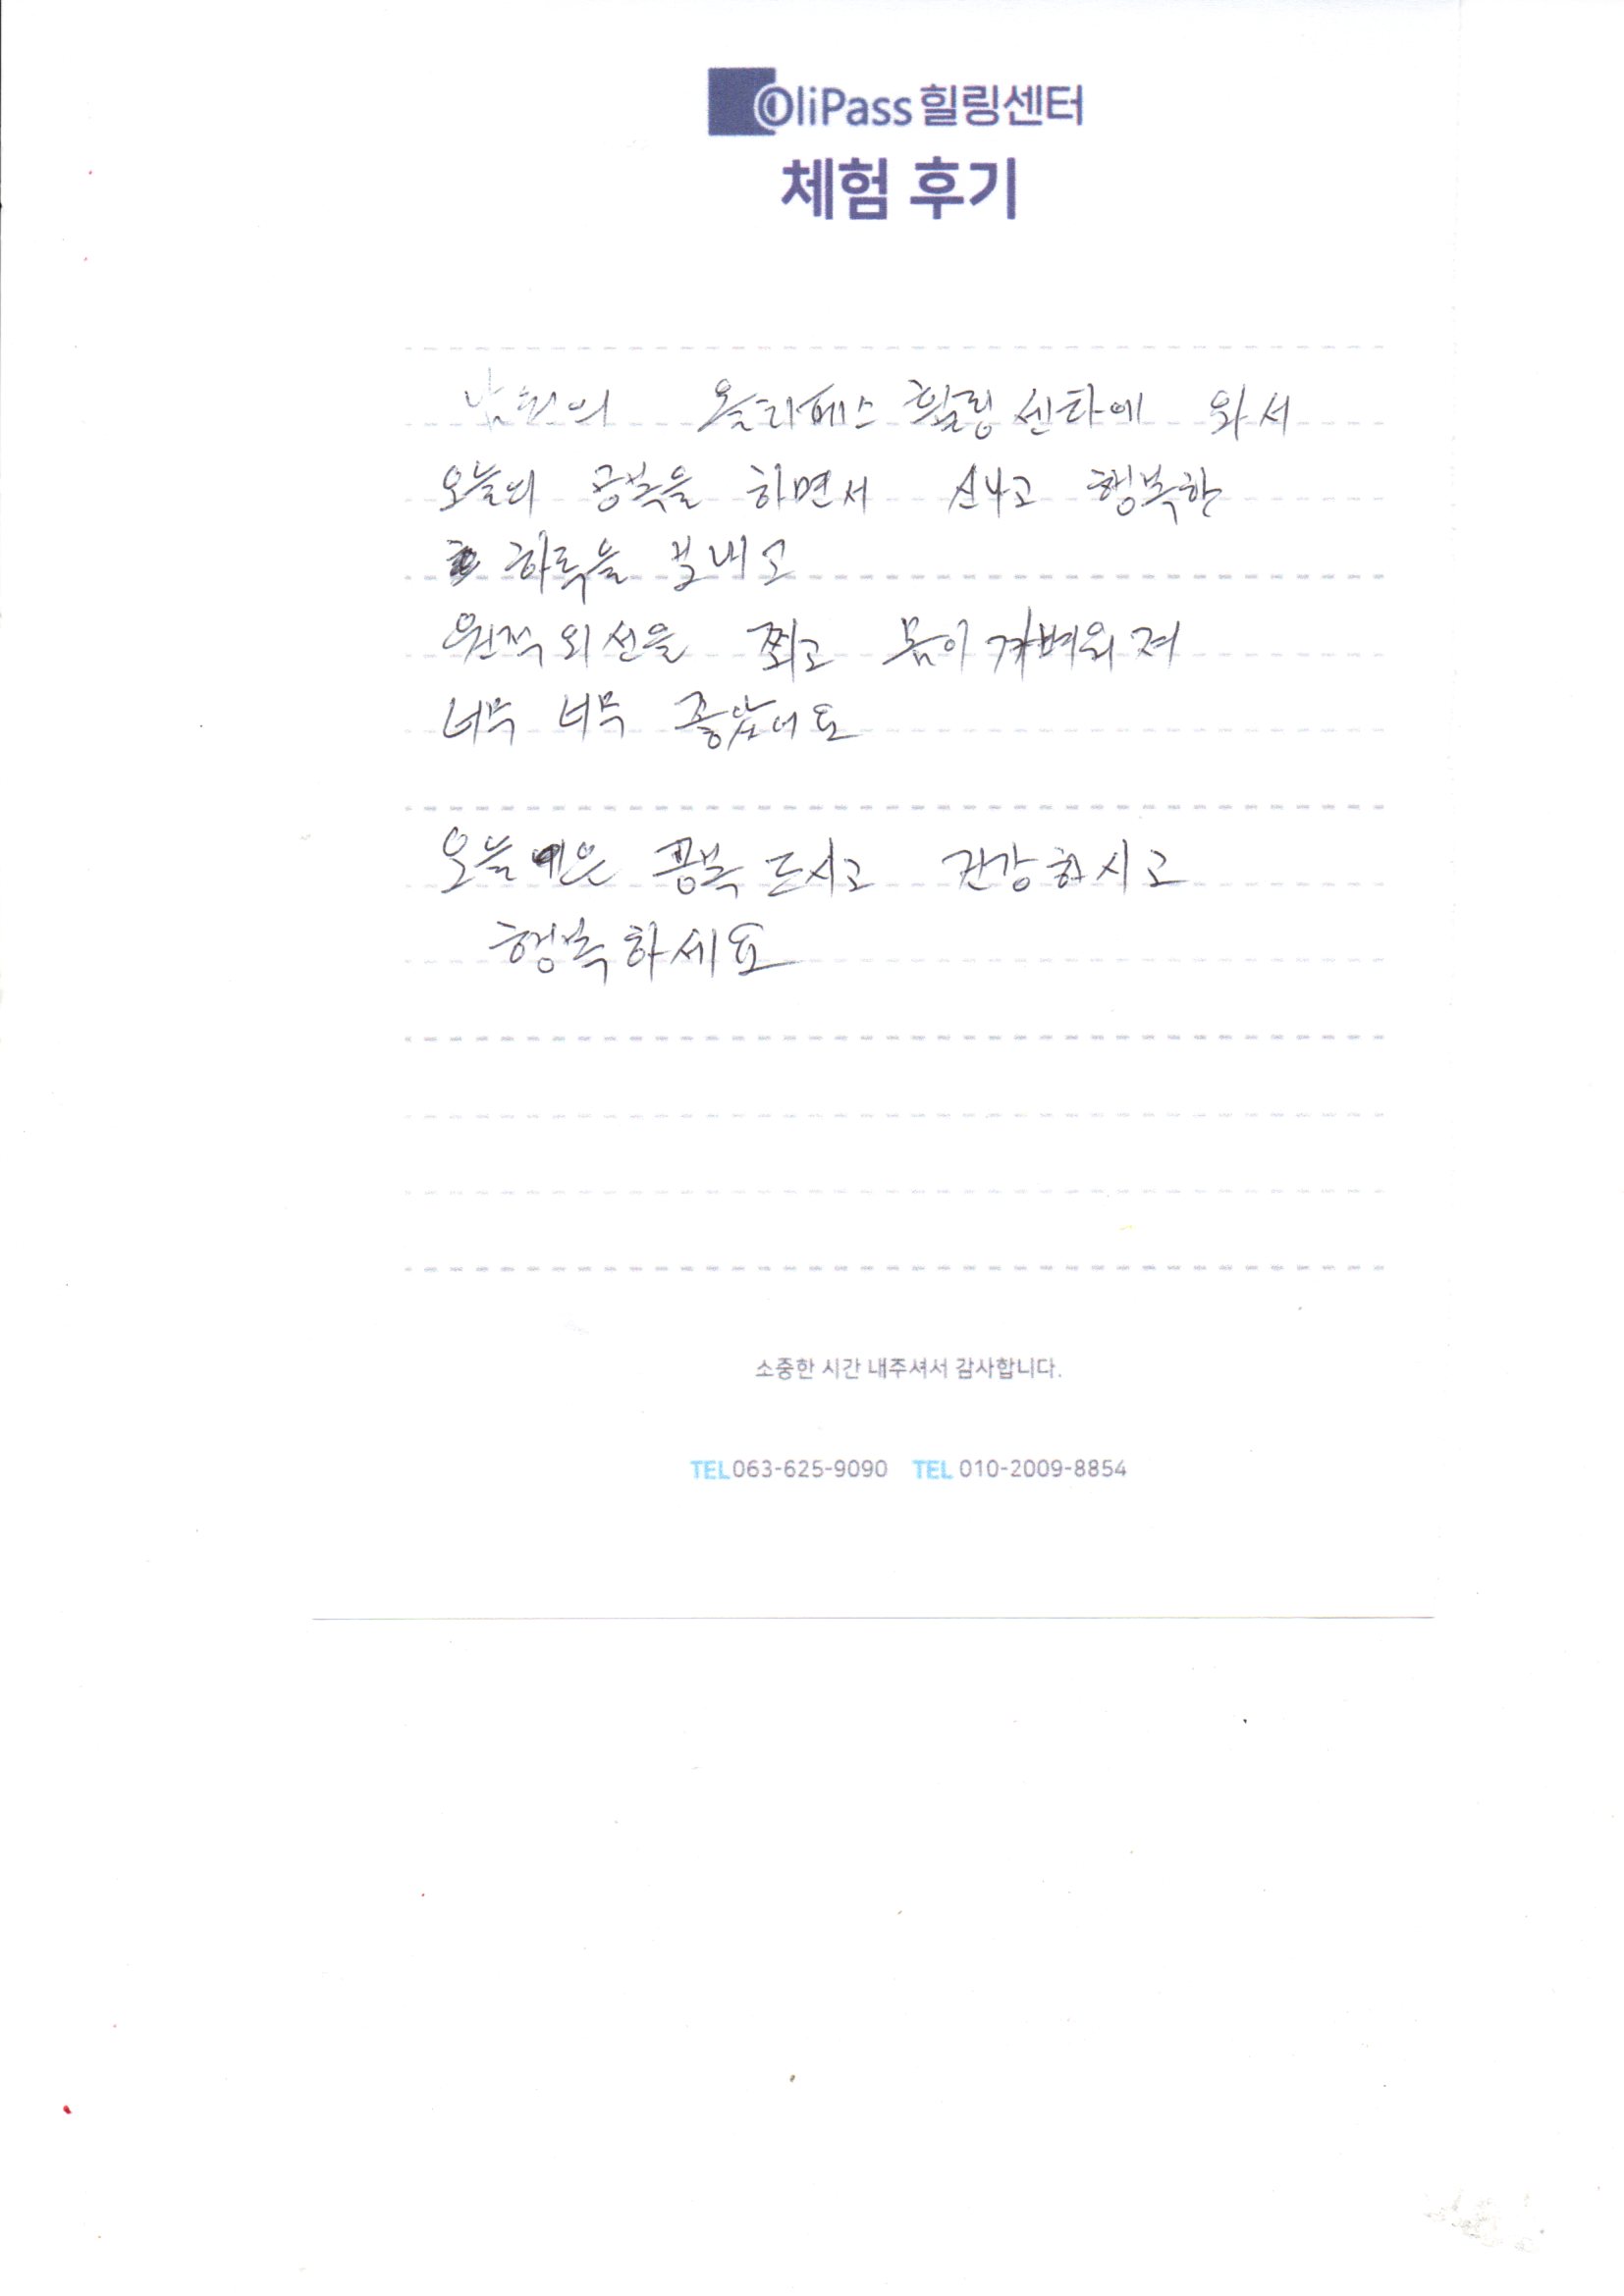 OliPass 힐링센터
체험 후기
남원의 올리페스 힐링센타에 와서
오늘의 공복을 하면서 신나고 행복한
하루을 보내고
원적외선을 쬐고 몸이 가벼워져
너무 너무 좋았어요
오늘 공복 드시고 건강하시고
행복하세요
소중한 시간 내주셔서 감사합니다.
TEL 063-625-9090 TEL 010-2009-8854